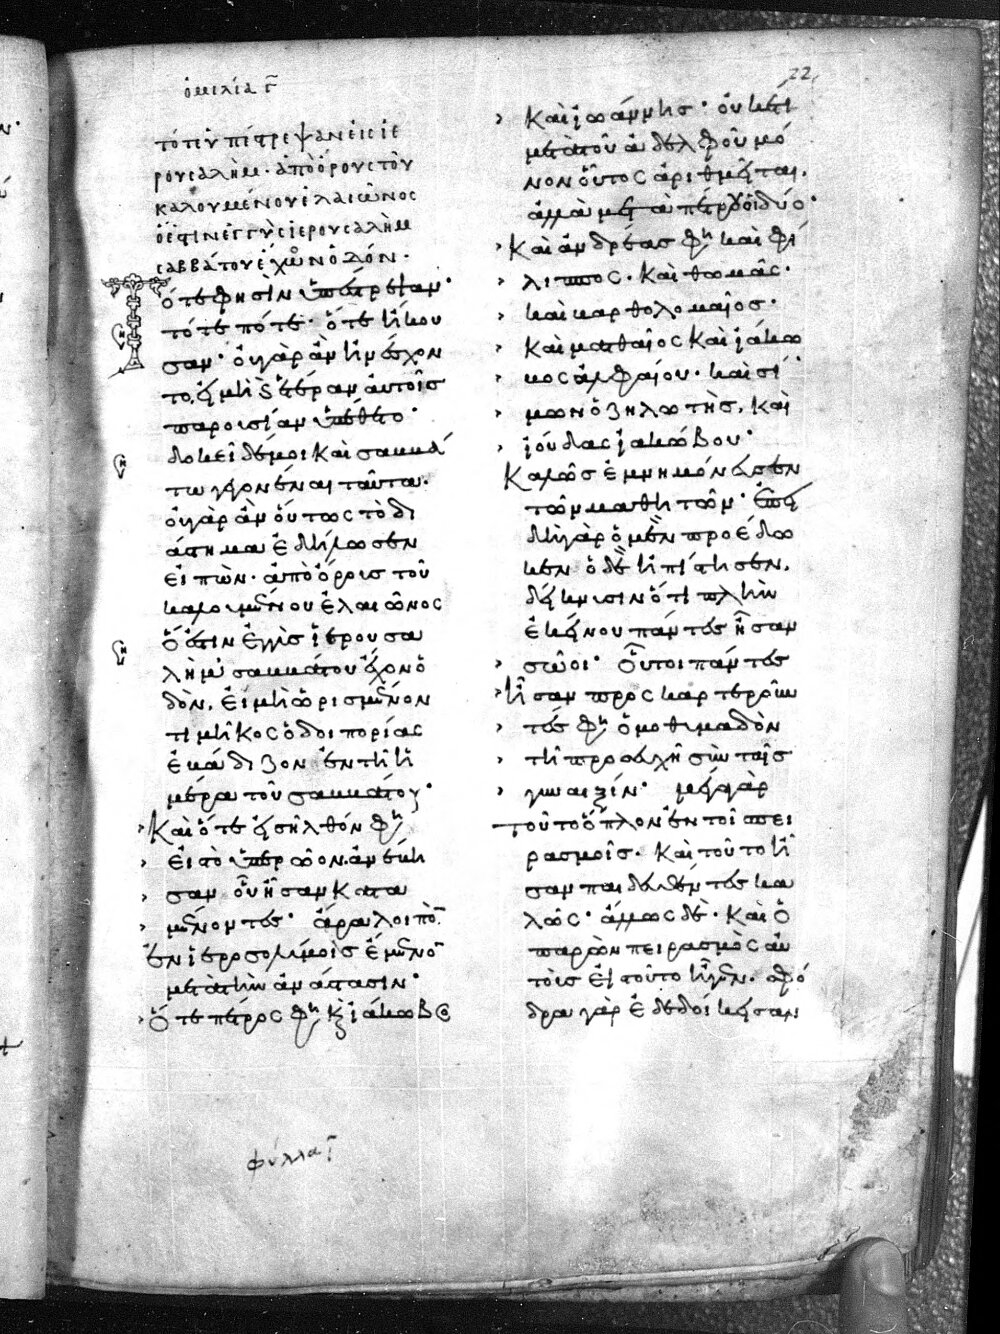 ὁμιλία γ
22
τότε ὑπέστρεψαν εἰς ἱε
ρουσαλὴμ· ἀπὸ ὄρους τοῦ
καλουμένου ἐλαιῶνος
ὅ ἐστιν ἐγγὺς ἱερουσαλὴμ
σαββάτου ἔχον ὁδόν.
Τότε φησὶν ὑπέστρεψαν·
τότε πότε· ὅτε ἤκου
σαν· οὐ γὰρ ἂν ἤνεσχον
το, εἰ μὴ ἑτέραν αὐτοῖς
παρουσίαν ὑπέθετο·
δοκεῖ δέ μοι καὶ σαββά
τω γεγονέναι ταῦτα.
οὐ γὰρ ἂν οὕτως τὸ δι
άστημα ἐδήλωσεν
εἰπὼν· ἀπὸ ὄρους τοῦ
καλουμένου ἐλαιῶνος
ὅ ἐστιν ἐγγὺς ἱερουσα
λὴμ· σαββάτου ἔχον ὁ
δὸν. εἰ μὴ ὡρισμένον
τι μῆκος ὁδοιπορίας
ἐβάδιζον ἐν τῆ ἡ
μέρα τοῦ σαββάτου·
Καὶ ὅτε εἰσῆλθόν φη
εἰς τὸ ὑπερῶον ἀνέβη
σαν οὗ ἦσαν κατα
μένοντες· ἄρα λοιπὸ
ἐν ἱεροσολύμοις ἔμενο
μετὰ τὴν ἀνάστασιν·
Ὅ τε πέτρος φη κ ἰάκωβος
φύλλα γ
Καὶ ἰωάννης· οὐκέτι
μετὰ τοῦ ἀδελφοῦ μό
νον οὗτος ἀριθμεῖται.
ἀλλὰ μετὰ πέτρου οἱ δύο·
Καὶ ἀνδρέας φη καὶ φί
λιππος. Καὶ θωμᾶς.
καὶ βαρθολομαῖος·
Καὶ ματθαῖος Καὶ ἰάκω
βος ἀλφαίου· καὶ σί
μων ὁ ζηλωτὴς. Καὶ
ἰούδας ἰακώβου·
Καλῶς ἐμνημόνευσεν
τῶν μαθητῶν· ἐπει
δὴ γὰρ ὁ μὲν προέδω
κεν ὁ δὲ ἠπίστησεν.
δείκνυσιν ὅτι πλὴν
ἐκείνου πάντες ἦσαν
σῶοι· Οὗτοι πάντες
ἦσαν προσκαρτεροῦν
τές φη ὁμοθυμαδὸν
τῆ προσευχῆ σὺν ταῖς
γυναιξίν· μέγα γὰρ
τοῦτο ὅπλον ἐν τοῖς πει
ρασμοῖς. Καὶ τοῦτο ἦ
σαν παιδευθέντες κα
λῶς· ἄλλως δὲ· Καὶ ὁ
παρὼν πειρασμὸς αὐ
τοῖς εἰς τοῦτο ἦγεν. σφό
δρα γὰρ ἐδεδοίκεισαν